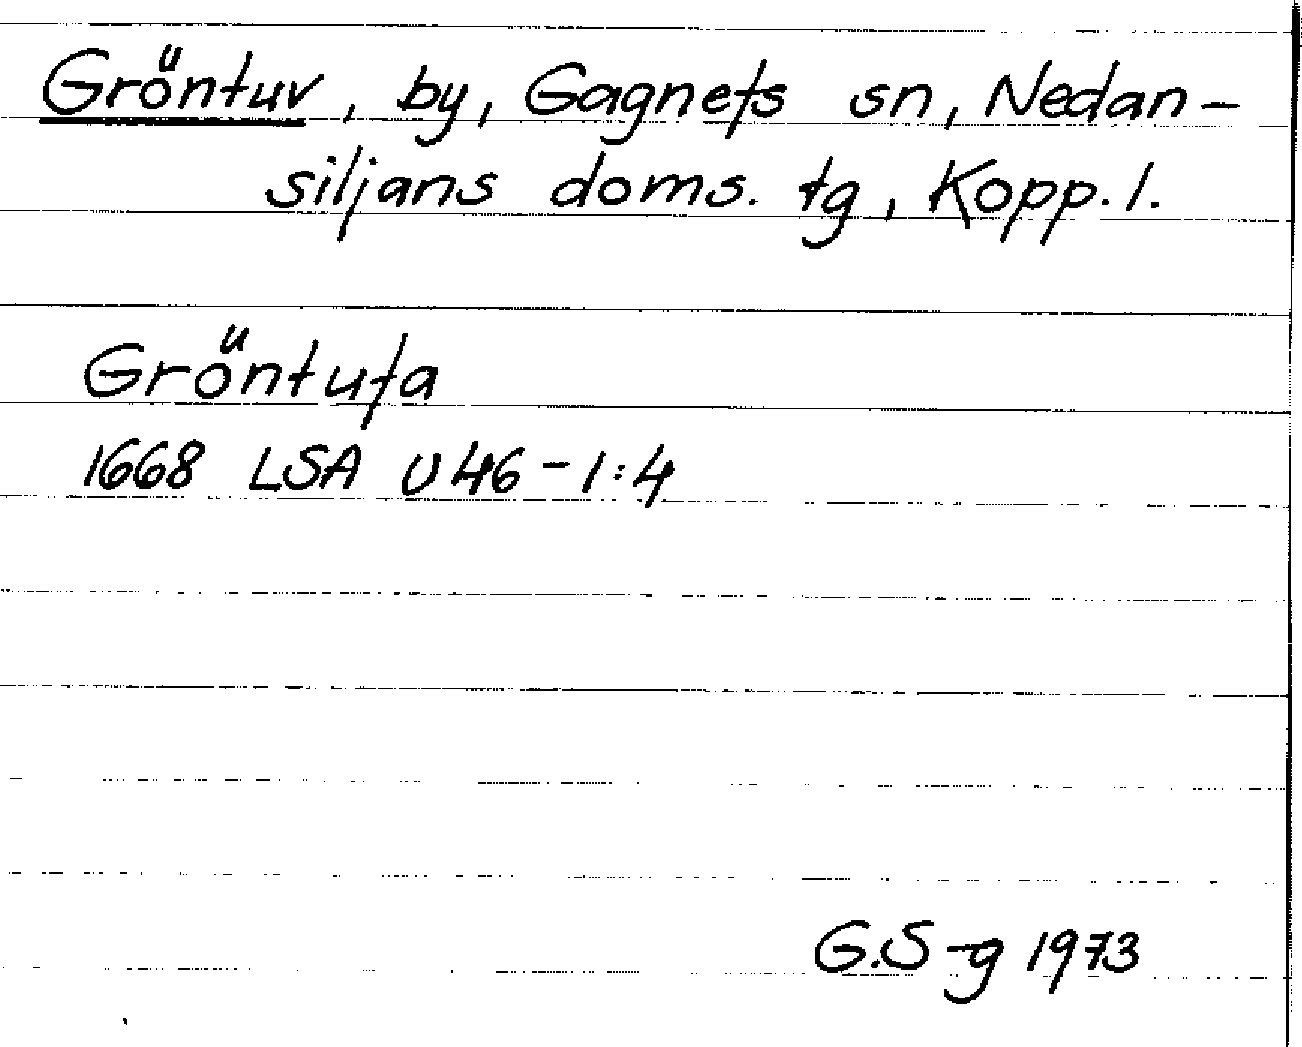 Gröntuv, by, Gagnefs sn, Nedan-
siljans doms. tg, Kopp. l.
Gröntufa
1668 LSA U46-1:4
G.S-g 1973